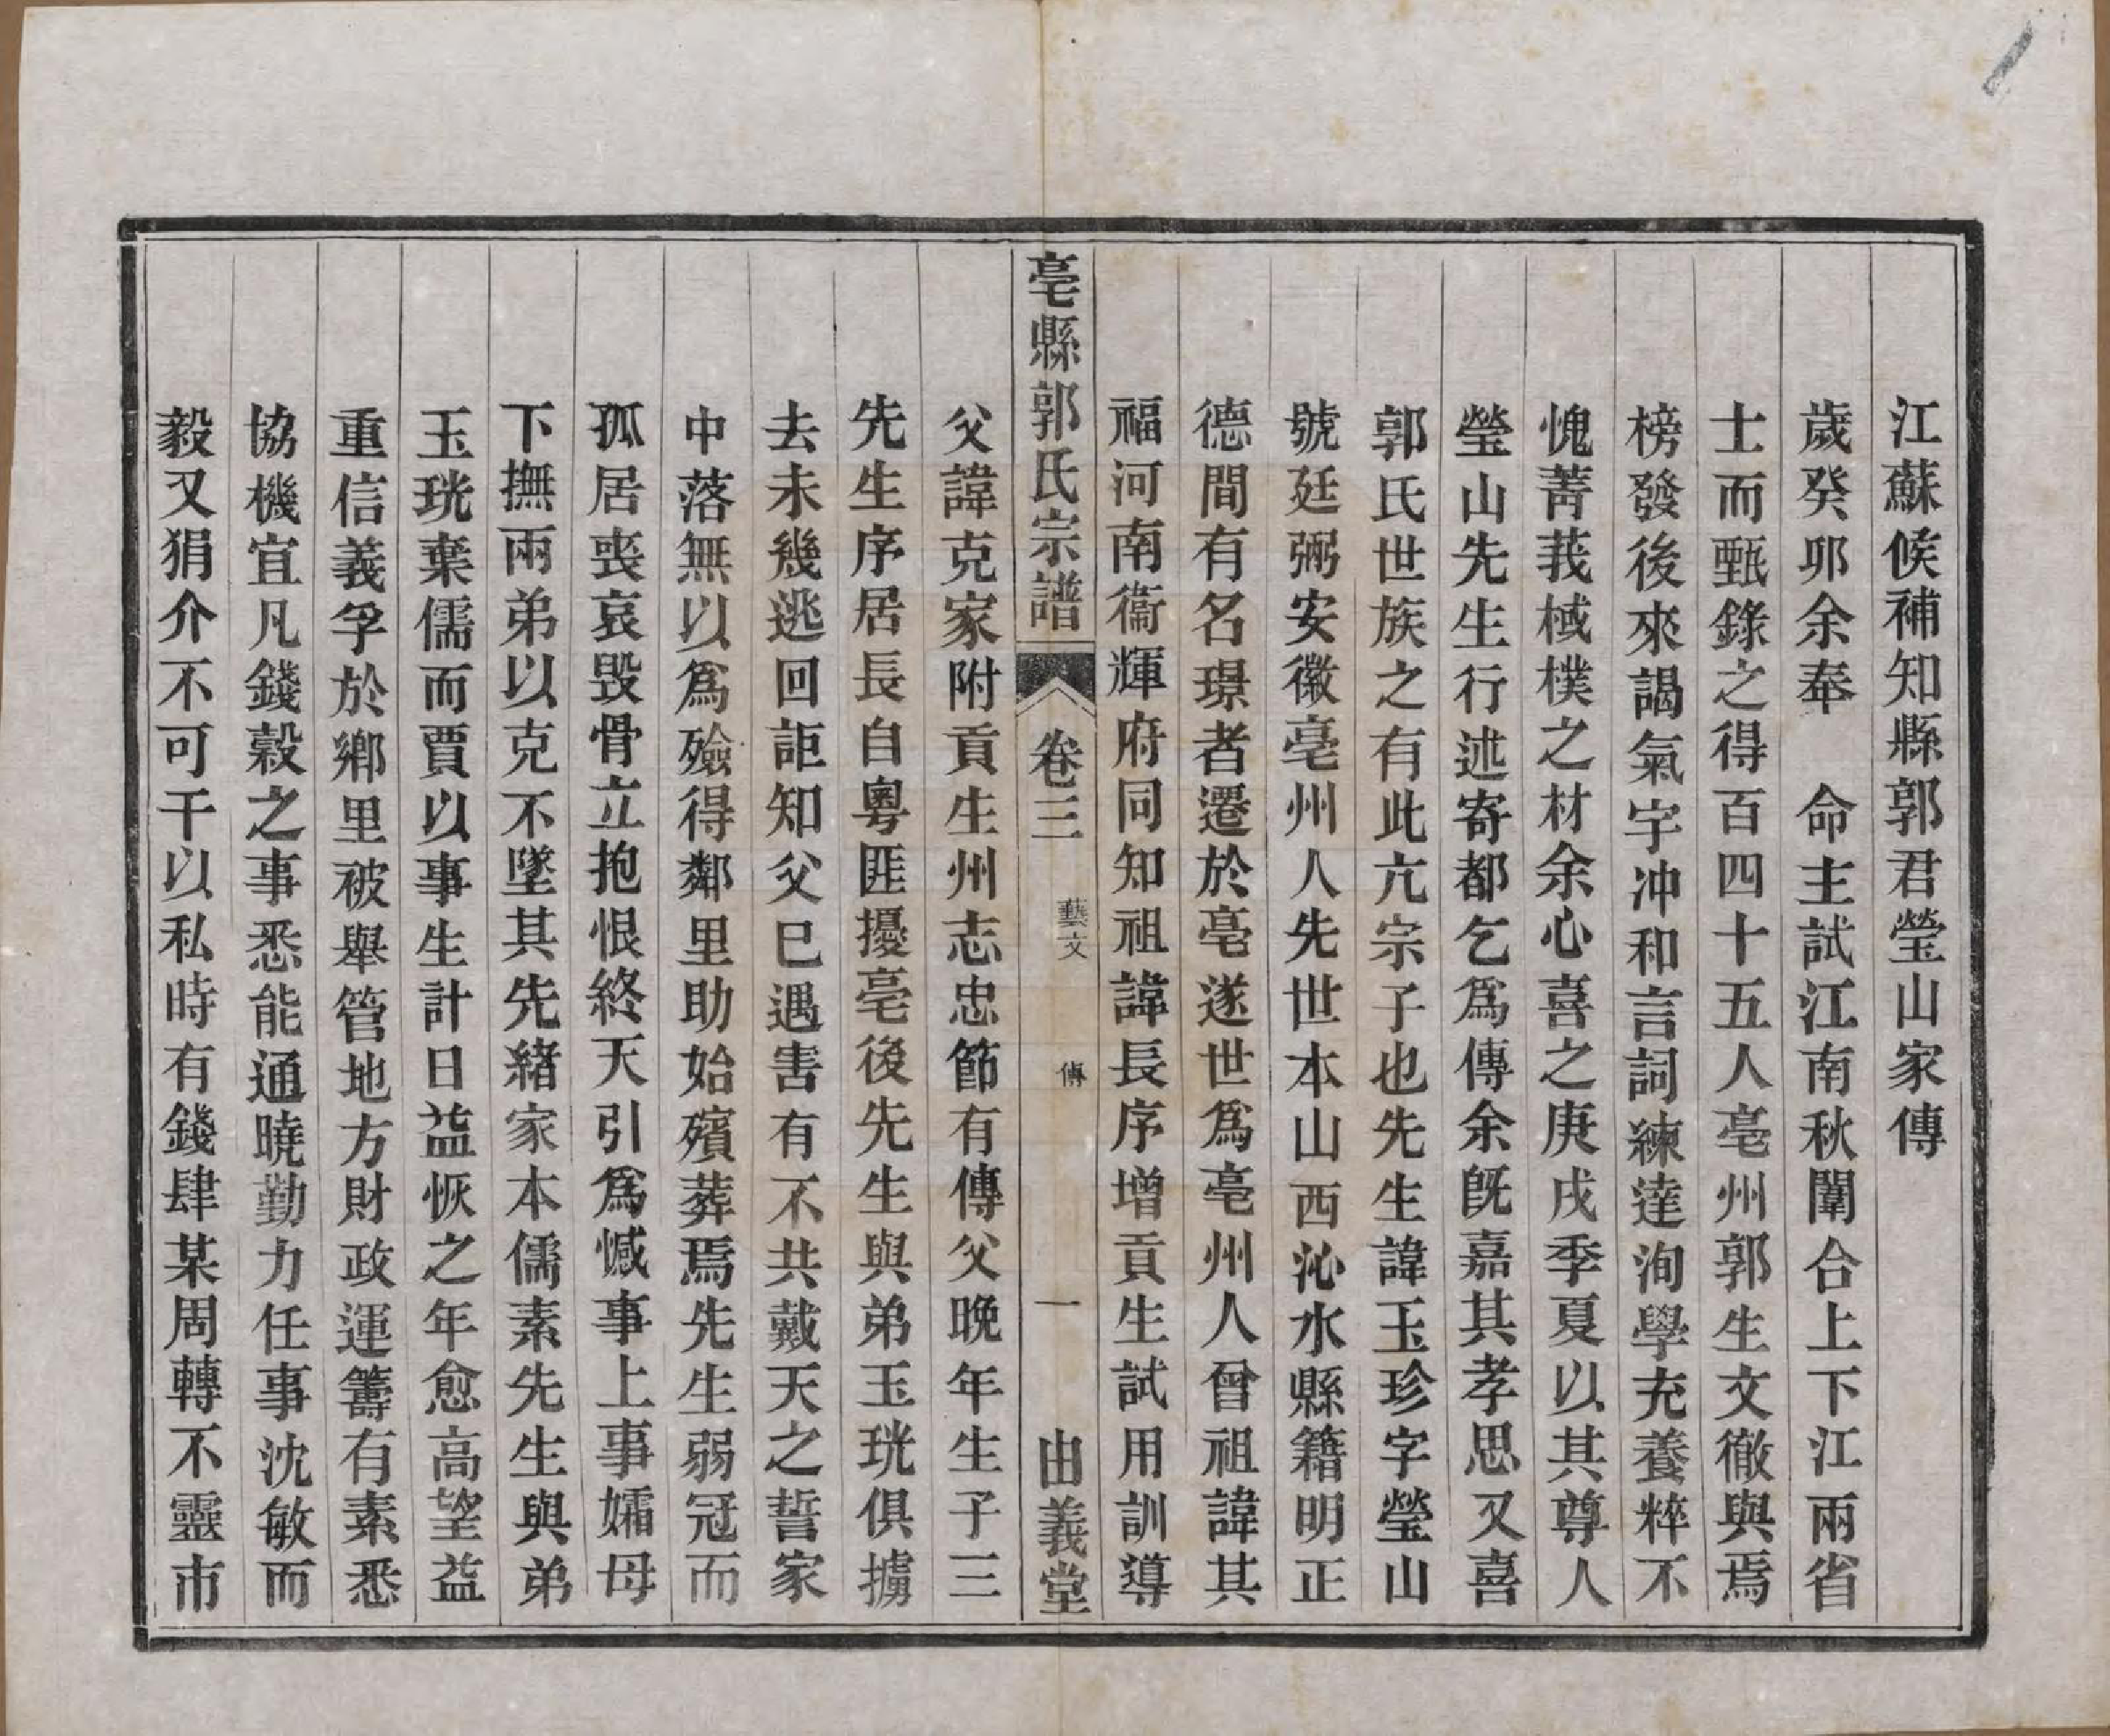 江蘇候補知縣郭君瑩山家傳
歲癸卯余奉　命主試江南秋闈合上下江兩省
士而甄錄之得百四十五人亳州郭生文徹與焉
榜發後來謁氣宇冲和言詞練達洵學充養粹不
愧菁莪棫樸之材余心喜之庚戌季夏以其尊人
瑩山先生行述寄都乞爲傳余旣嘉其孝思又喜
郭氏世族之有此亢宗子也先生諱玉珍字瑩山
號廷弼安徽亳州人先世本山西沁水縣籍明正
德間有名璟者遷於亳遂世爲亳州人曾祖諱其
福河南衞輝府同知祖諱長序增貢生試用訓導
亳縣郭氏宗譜　卷三　藝文　傳　一　由義堂
父諱克家附貢生州志忠節有傳父晚年生子三
先生序居長自粵匪擾亳後先生與弟玉珖俱擄
去未幾逃回詎知父已遇害有不共戴天之誓家
中落無以爲殮得鄰里助始殯葬焉先生弱冠而
孤居喪哀毀骨立抱恨終天引爲憾事上事孀母
下撫兩弟以克不墜其先緒家本儒素先生與弟
玉珖棄儒而賈以事生計日益恢之年愈高望益
重信義孚於鄉里被舉管地方財政運籌有素悉
協機宜凡錢穀之事悉能通曉勤力任事沈敏而
毅又狷介不可干以私時有錢肆某周轉不靈市